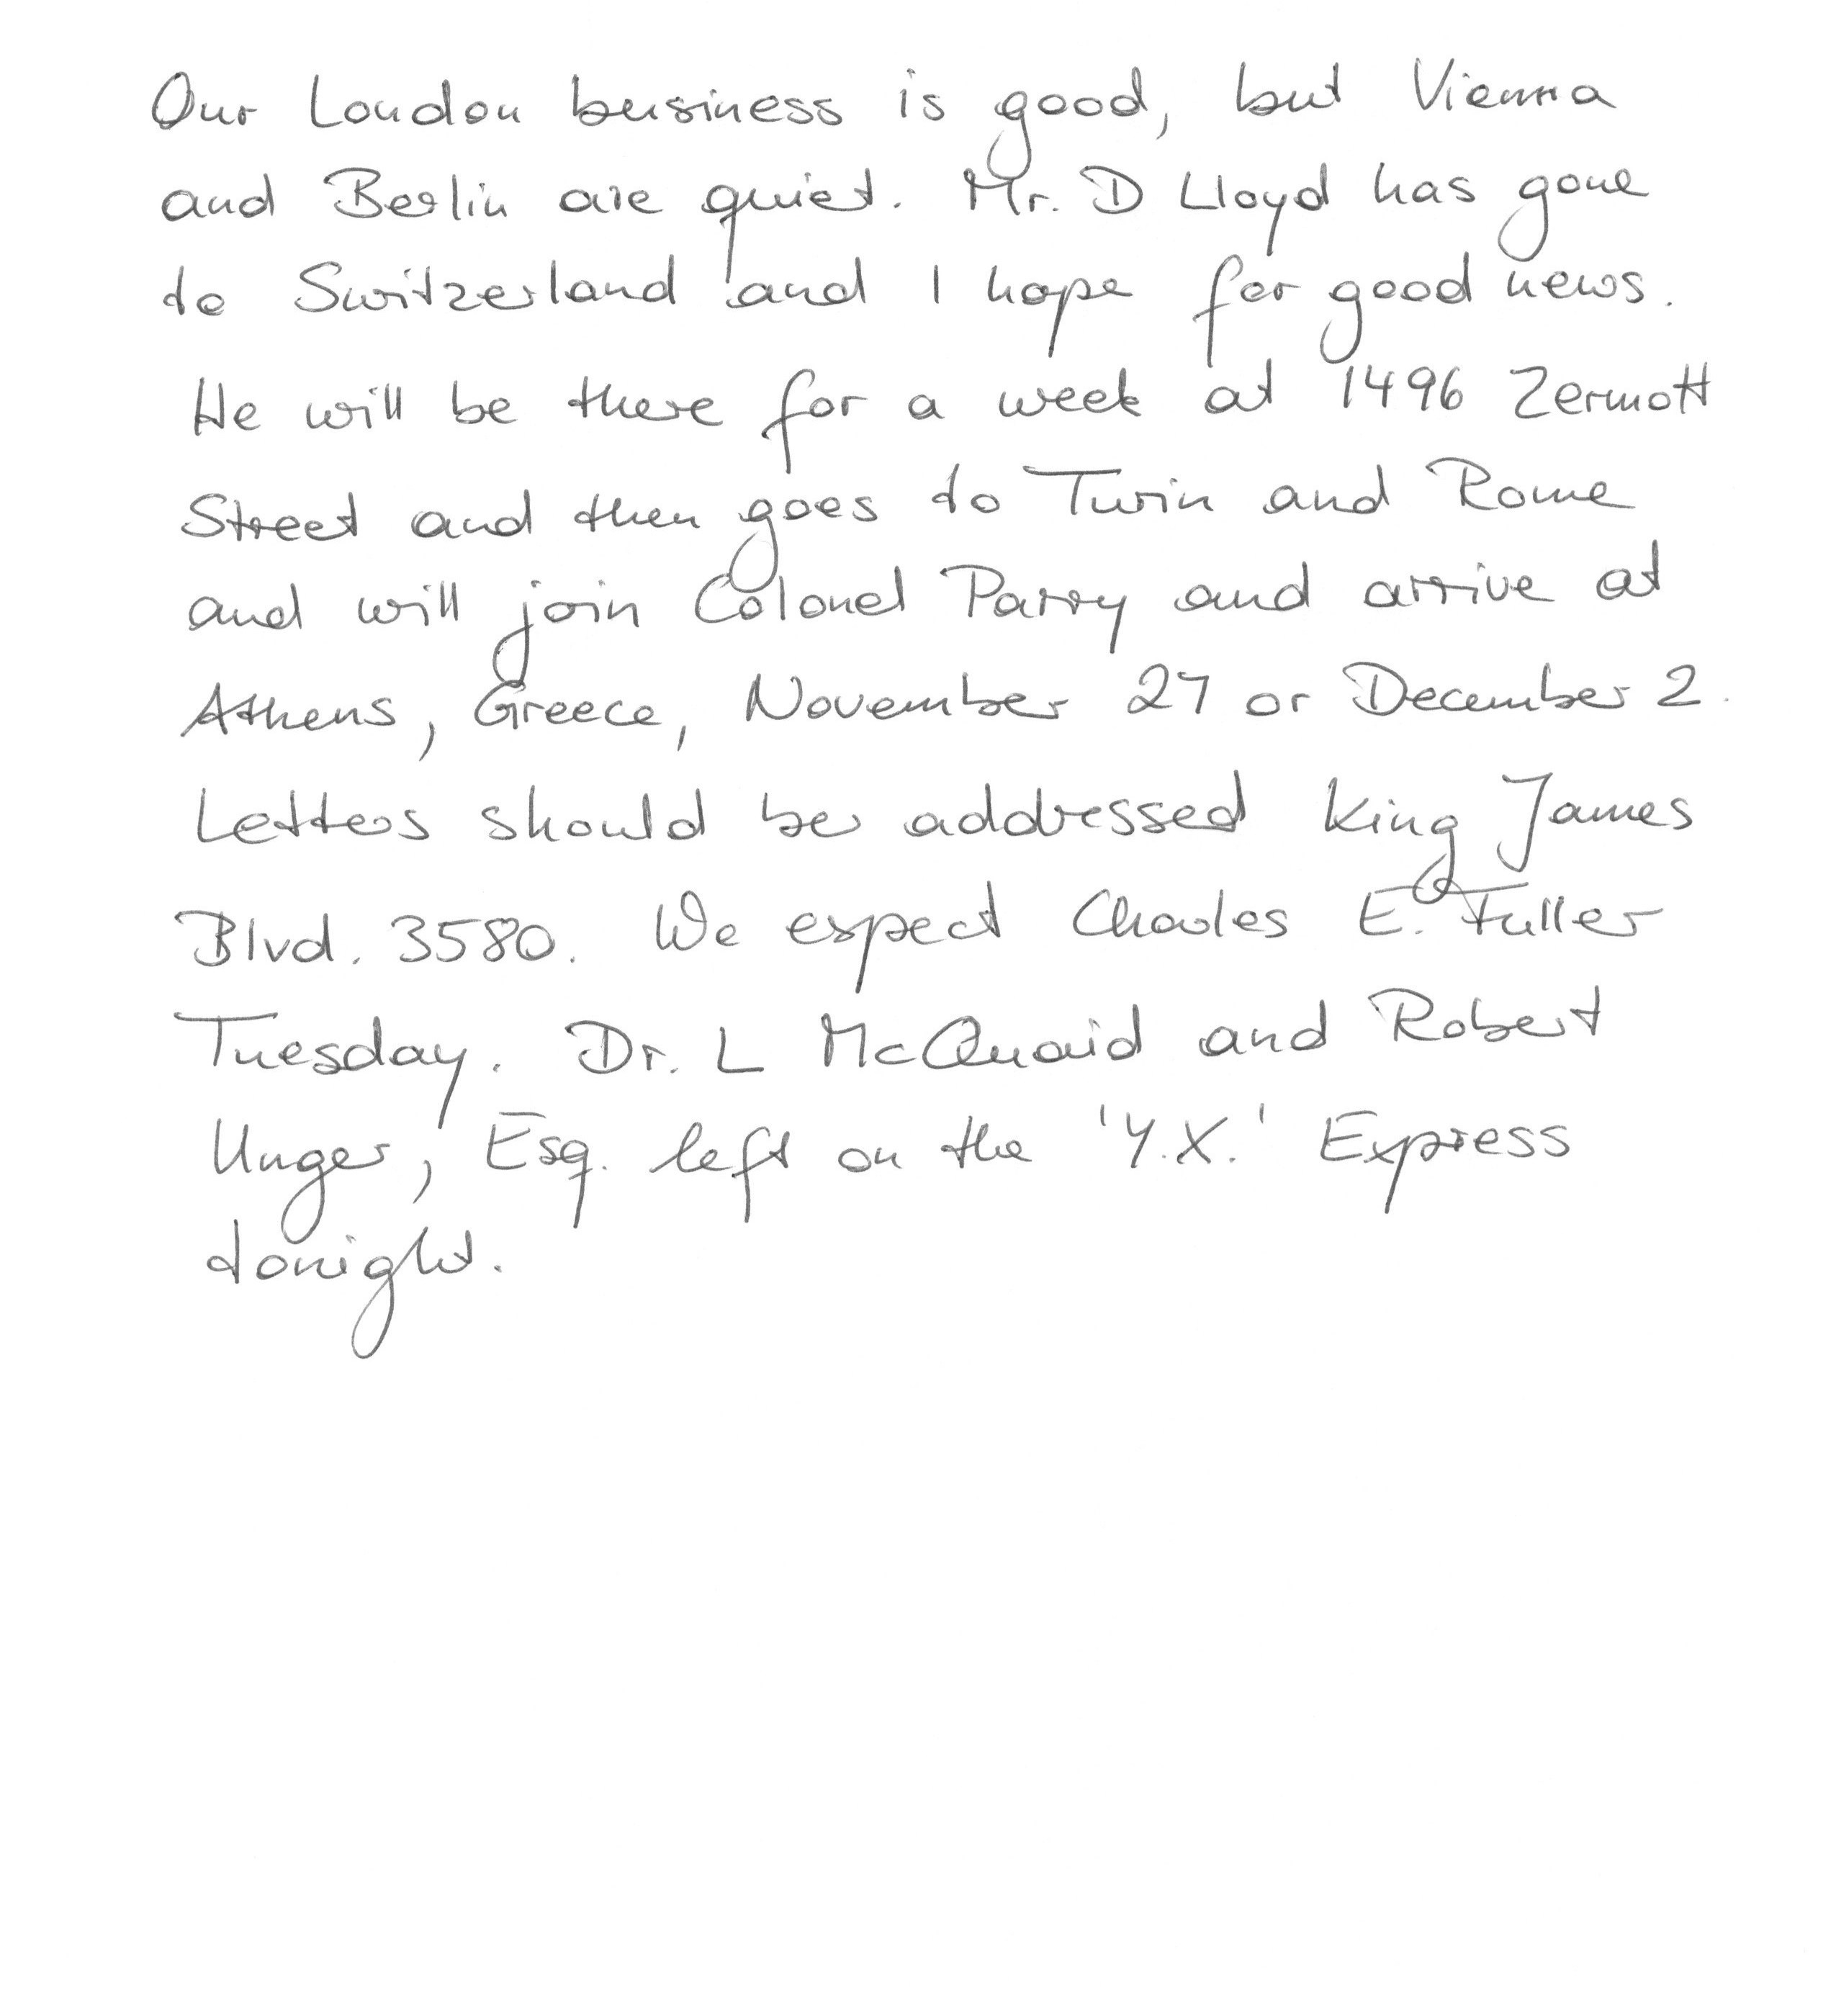 Our London business is good, but Vienna
and Berlin are quiet. Mr. D Lloyd has gone
to Switzerland and I hope for good news.
He will be there for a week at 1496 Zermott
Street and then goes to Turin and Rome
and will join Colonel Parry and arrive at
Athens, Greece, November 27 or December 2.
Letters should be addressed King James
Blvd. 3580. We expect Charles E. Fuller
Tuesday. Dr. L McQuaid and Robert
Unger, Esq. left on the 'Y.X.' Express
tonight.